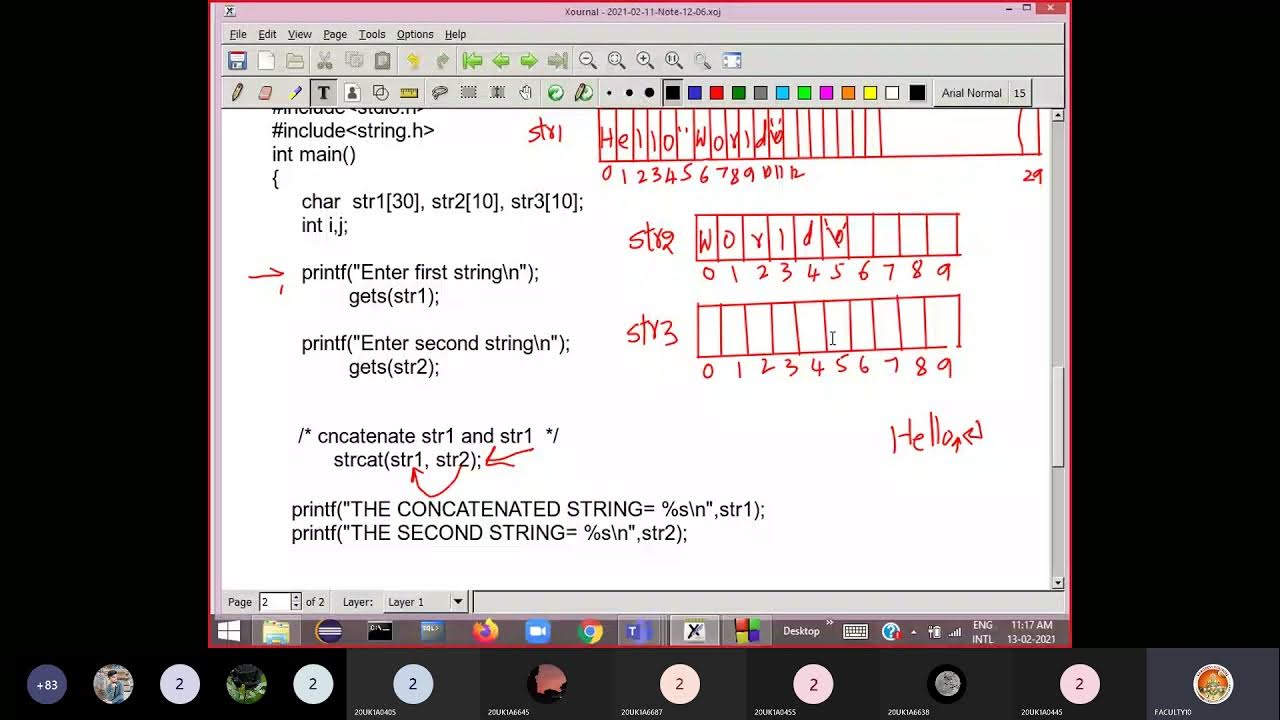 Xournal - 2021-02-11-Note-12-06.xoj
File Edit View Page Tools Options Help
T Arial Normal 15
#include<stdio.h>
#include<string.h>
int main()
{
char str1[30], str2[10], str3[10];
int i,j;
printf("Enter first string\n");
gets(str1);
printf("Enter second string\n");
gets(str2);
/* cncatenate str1 and str1 */
strcat(str1, str2);
printf("THE CONCATENATED STRING= %s\n",str1);
printf("THE SECOND STRING= %s\n",str2);
str1 H e l l o " W o r l d
0 1 2 3 4 5 6 7 8 9 10 11 12 29
str2 W o r l d \0
0 1 2 3 4 5 6 7 8 9
str3
0 1 2 3 4 5 6 7 8 9
Hello
Page 2 of 2 Layer: Layer 1
Desktop » ENG 11:17 AM
INTL 13-02-2021
+83 2 2 2 2 2 2
20UK1A0405 20UK1A6645 20UK1A6687 20UK1A0455 20UK1A6638 20UK1A0445 FACULTY10